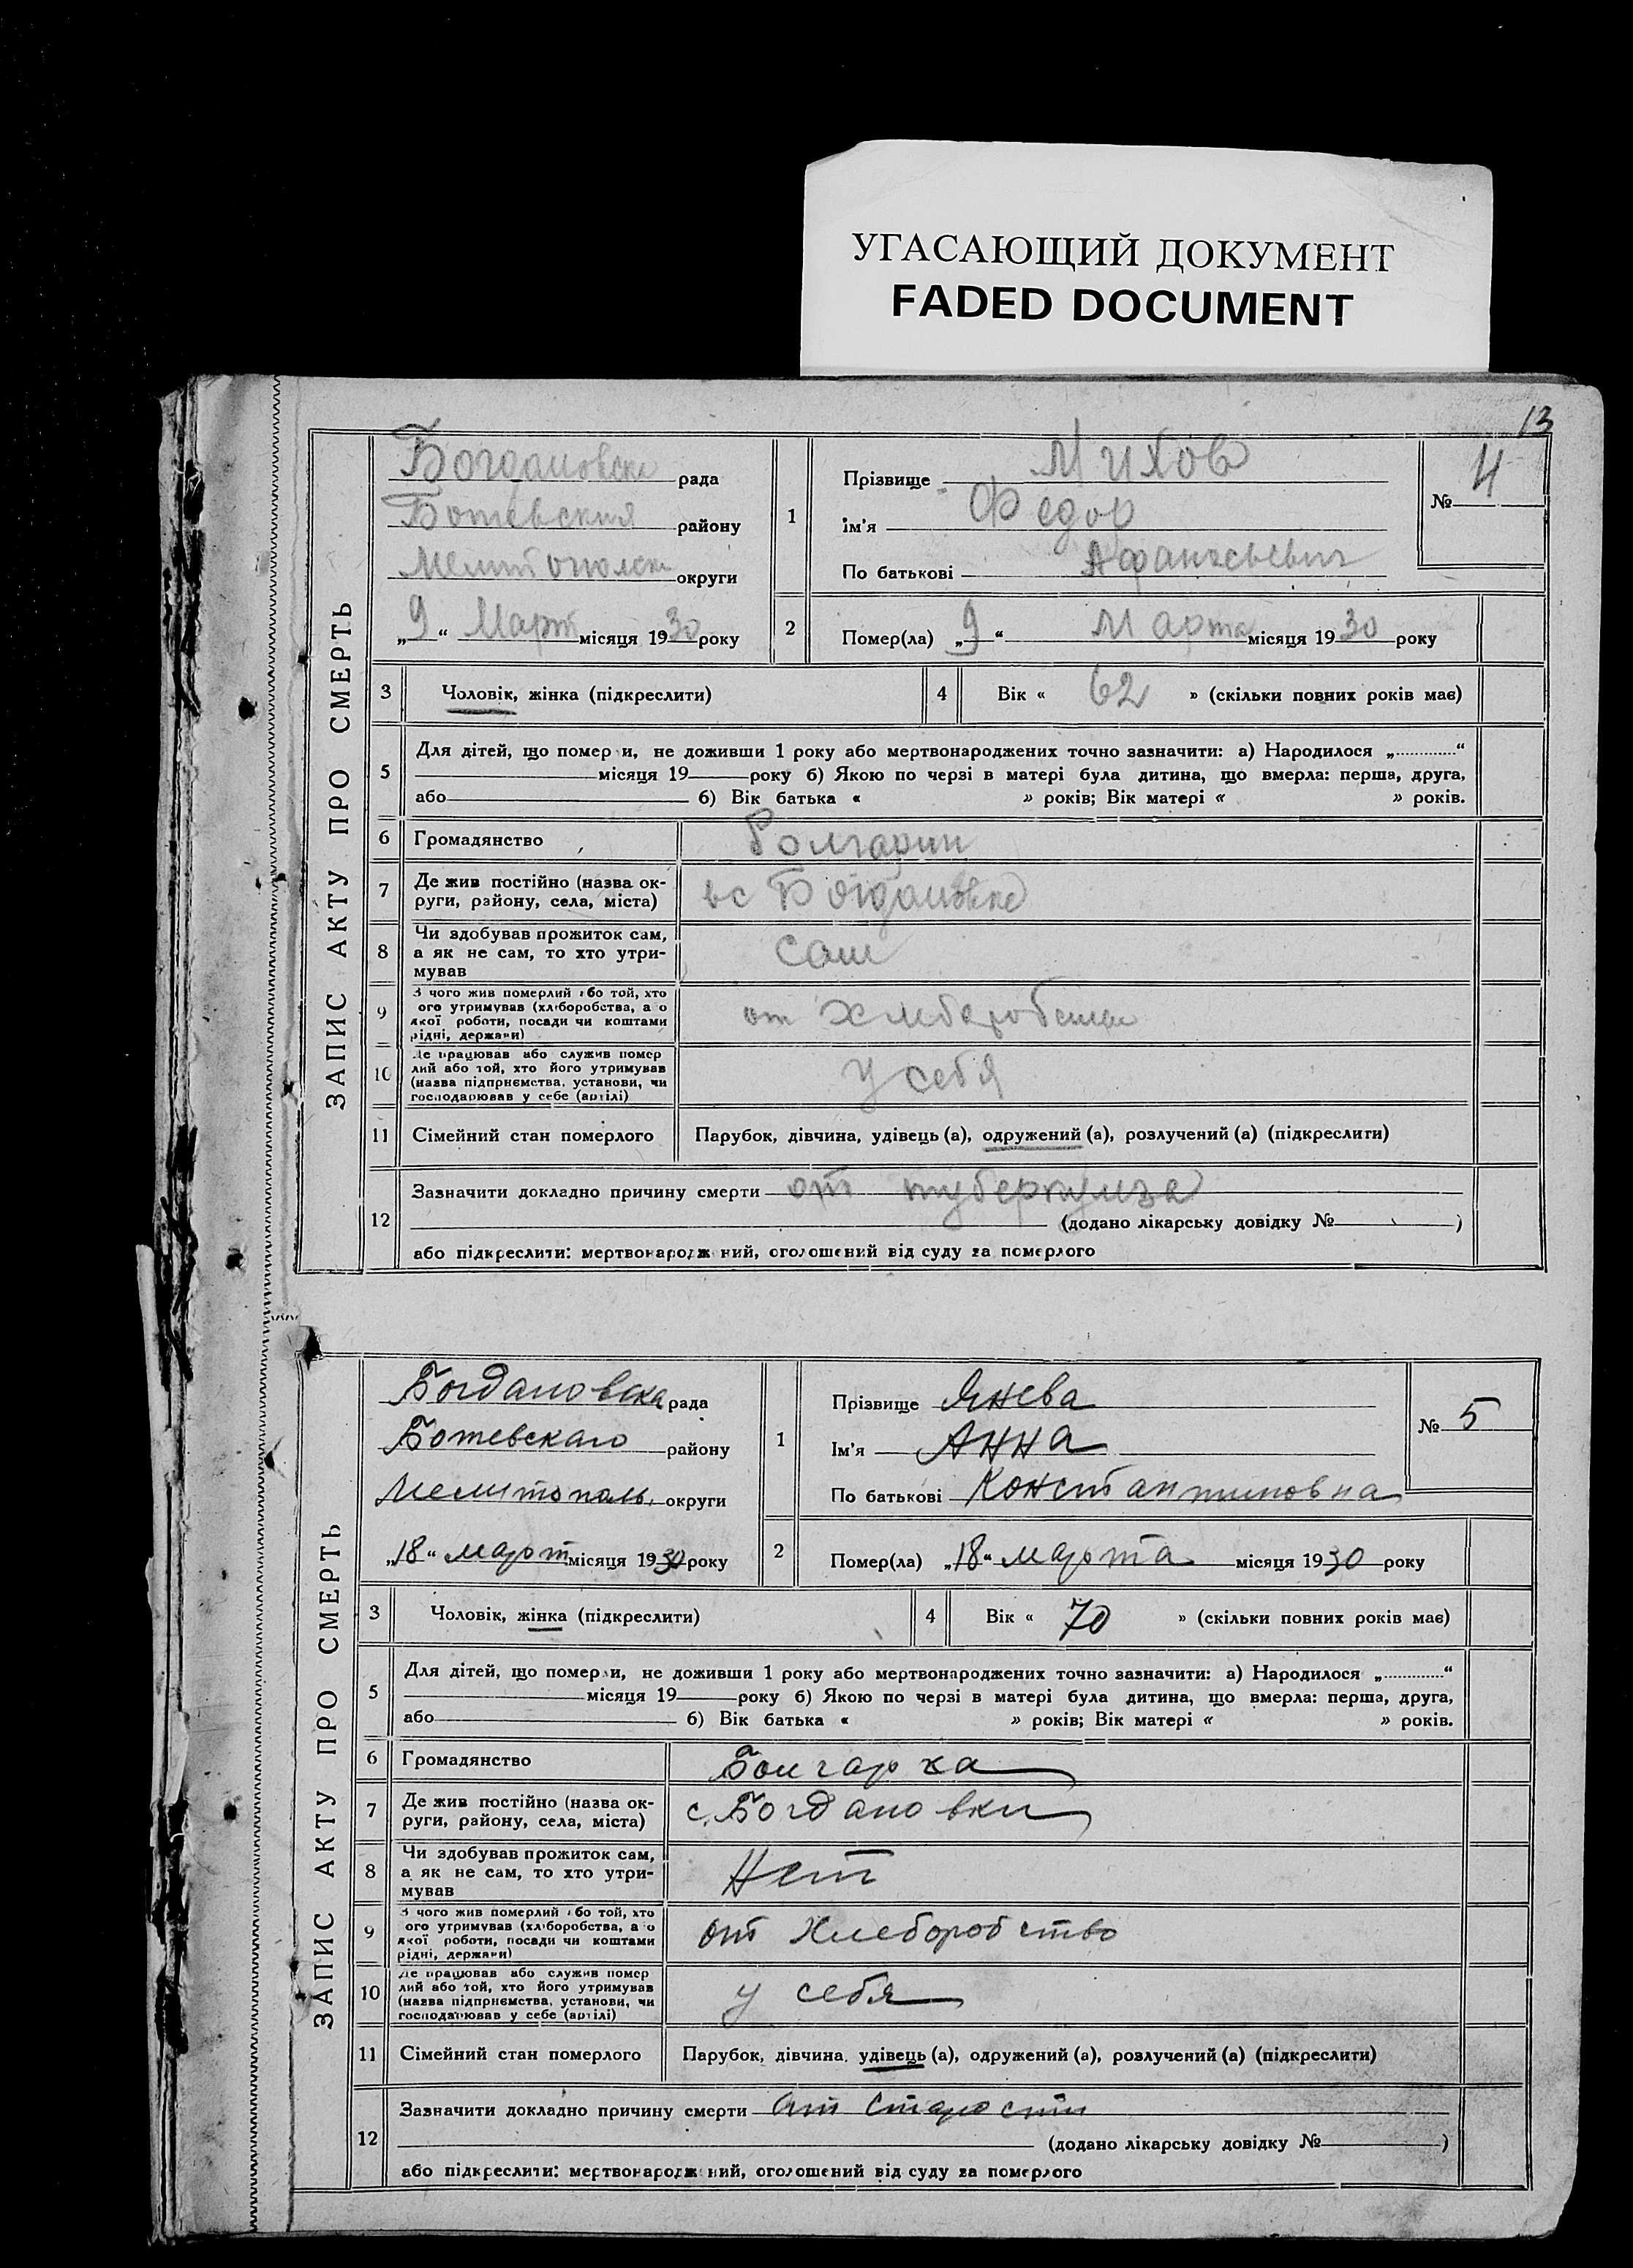 УГАСАЮЩИЙ ДОКУМЕНТ
FADED DOCUMENT
13
ЗАПИС АКТУ ПРО СМЕРТЬ
Богдановска рада
Ботевския району
Мелитополск округи
„9“ Март місяця 1930 року
1
Прізвище Михов
ім'я Федор
По батькові Афанасьевич
№ 4
2
Помер(ла) „9“ Марта місяця 1930 року
3 Чоловік, жінка (підкреслити)
4 Вік « 62 » (скільки повних років має)
5
Для дітей, що помер и, не доживши 1 року або мертвонароджених точно зазначити: а) Народилося „............“
місяця 19 року б) Якою по черзі в матері була дитина, що вмерла: перша, друга,
або б) Вік батька « » років; Вік матері « » років.
6 Громадянство Болгарин
7 Де жив постійно (назва ок-
руги, району, села, міста) вс Богдановке
8 Чи здобував прожиток сам,
а як не сам, то хто утри-
мував
сам
9 З чого жив померлий або той, хто
ого утримував (хліборобства, а о
якої роботи, посади чи коштами
рідні, держави)
от
10 Де працював або служив помер
лий або той, хто його утримував
(назва підприємства, установи, чи
господарював у себе (артілі)
у себя
11 Сімейний стан померлого Парубок, дівчина, удівець (а), одружений (а), розлучений (а) (підкреслити)
12
Зазначити докладно причину смерти от туберкулза
(додано лікарську довідку № )
або підкреслити: мертвонародж ний, оголошений від суду за померлого
ЗАПИС АКТУ ПРО СМЕРТЬ
Богдановска рада
Ботевскаго району
Мелитополь. округи
„18“ март місяця 1930 року
1
Прізвище Янева
Ім'я Анна
По батькові Константиновна
№ 5
2
Помер(ла) „18“ марта місяця 1930 року
3 Чоловік, жінка (підкреслити)
4 Вік « 70 » (скільки повних років має)
5
Для дітей, що помер и, не доживши 1 року або мертвонароджених точно зазначити: а) Народилося „............“
місяця 19 року б) Якою по черзі в матері була дитина, що вмерла: перша, друга,
або б) Вік батька « » років; Вік матері « » років.
6 Громадянство Болгарка
7 Де жив постійно (назва ок-
руги, району, села, міста) с. Богдановки
8 Чи здобував прожиток сам,
а як не сам, то хто утри-
мував
Нет
9 З чого жив померлий або той, хто
ого утримував (хліборобства, а о
якої роботи, посади чи коштами
рідні, держави)
от Хлеборобство
10 Де працював або служив помер
лий або той, хто його утримував
(назва підприємства, установи, чи
господарював у себе (артілі)
у себя
11 Сімейний стан померлого Парубок, дівчина, удівець (а), одружений (а), розлучений (а) (підкреслити)
12
Зазначити докладно причину смерти От Старости
(додано лікарську довідку № )
або підкреслити: мертвонародж ний, оголошений від суду за померлого